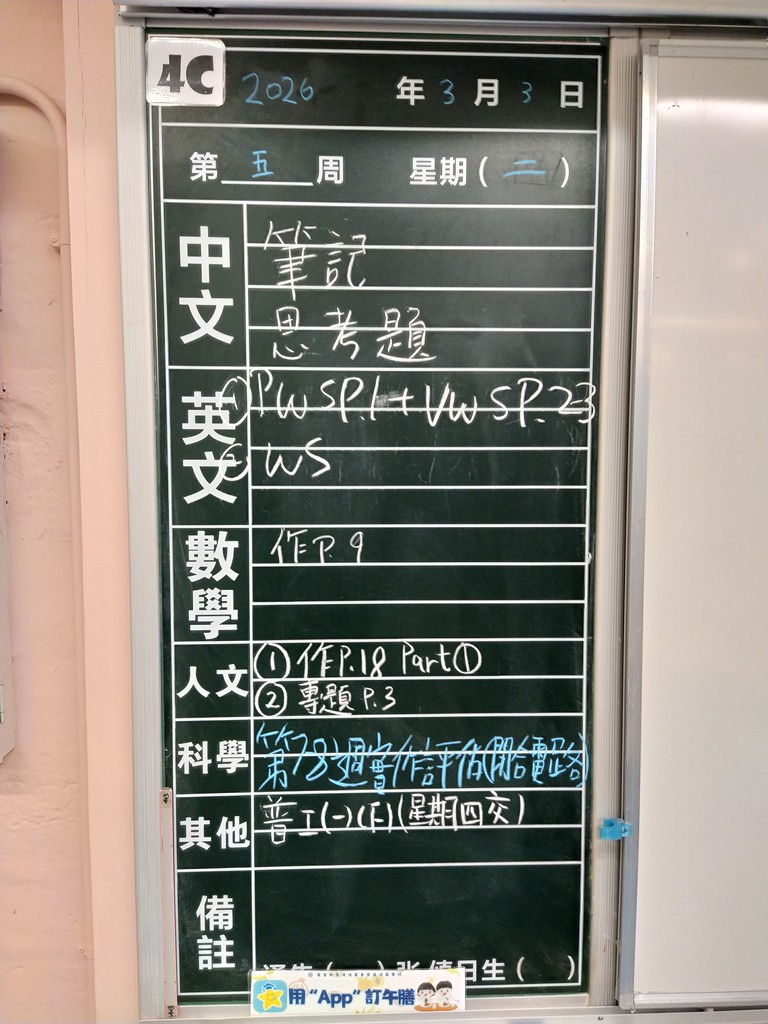 4C
2026 年 3 月 3 日
第 五 周 星期 ( 二 )
中文
筆記
思考題
英文
① PW SP.1 + VW SP.23
② WS
數學
作P.9
人文
① 作P.18 Part①
② 專題 P.3
科學
第78週實作評估(閉合電路)
其他
普工(一)(下)(星期四交)
備註
通告( )張 值日生( )
用 “App” 訂午膳